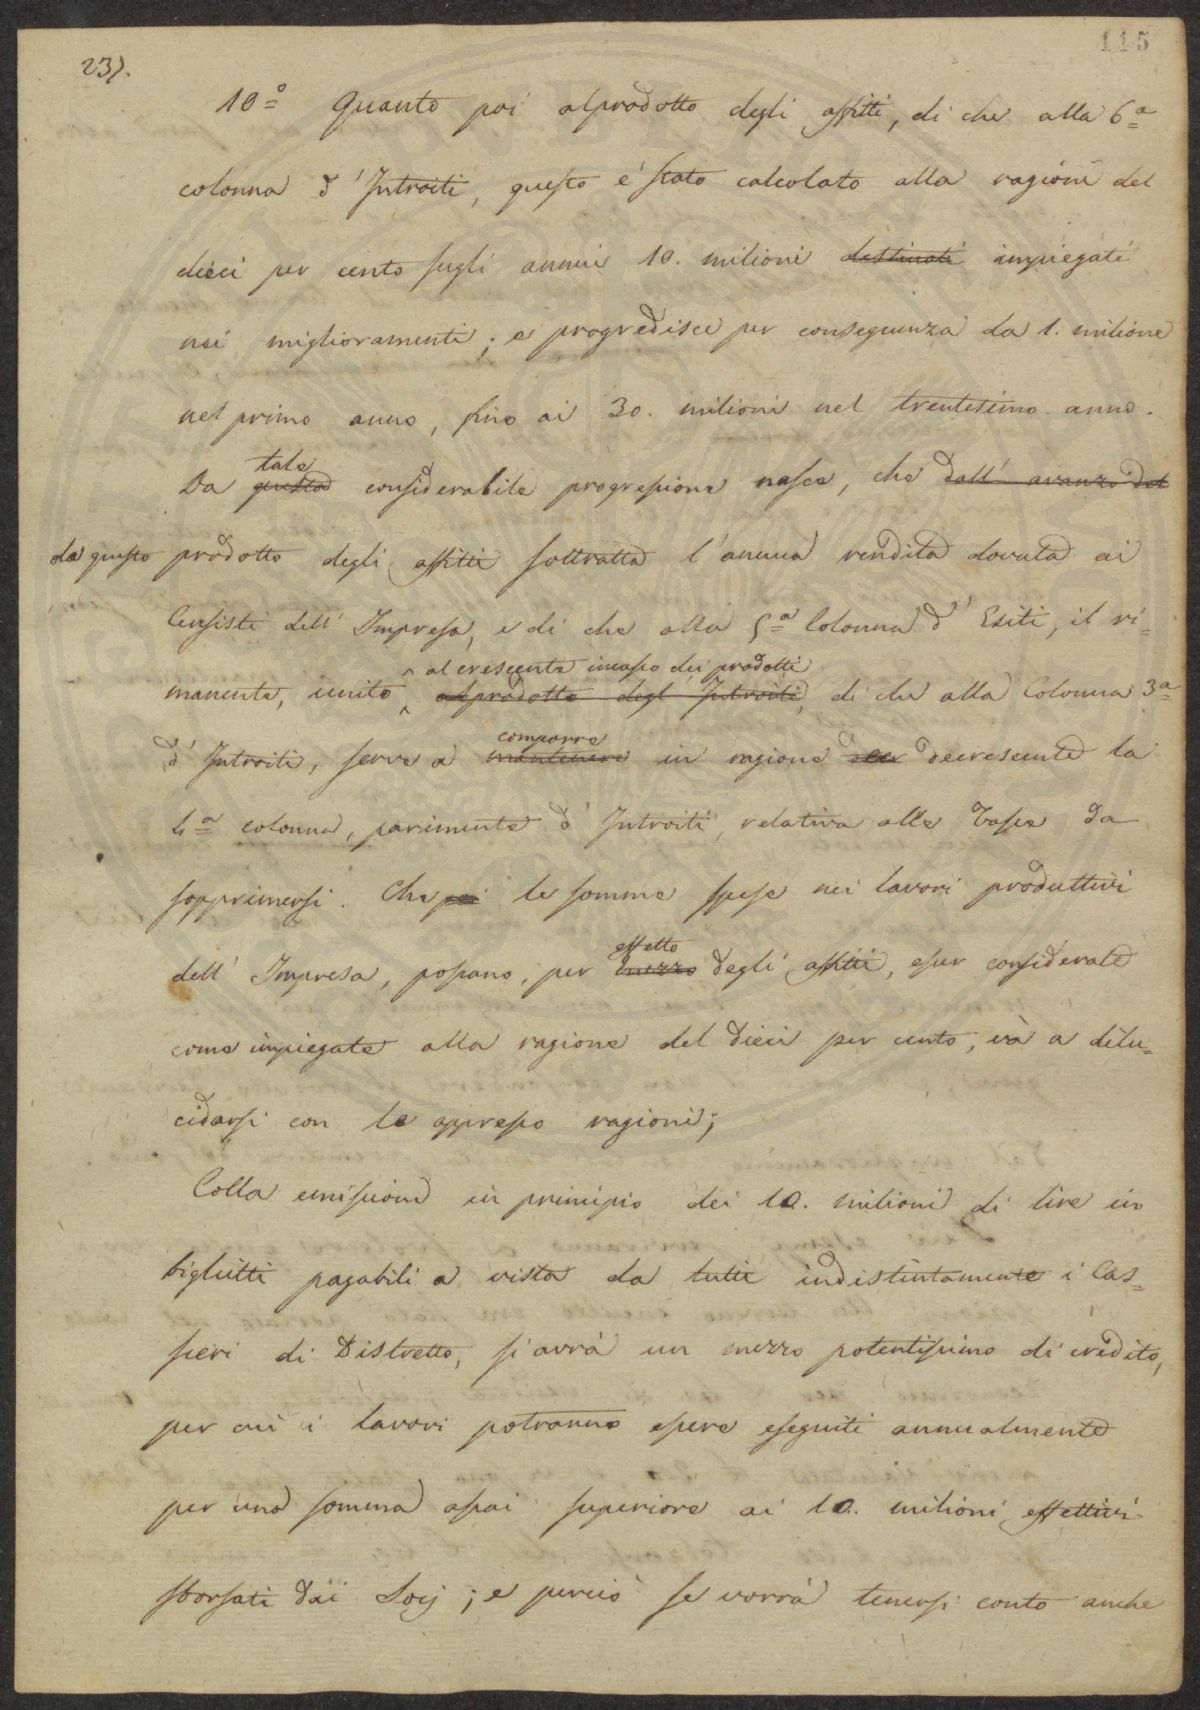 115
23).
10º Quanto poi al prodotto degli affitti, di che alla 6ª
colonna d'Introiti, questo è stato calcolato alla ragione del
dieci per cento sugli annui 10. milioni destinati impiegati
nei miglioramenti; e progredisce per conseguenza da 1. milione
nel primo anno, fino ai 30. milioni nel trentesimo anno.
tale
Da questa considerabile progressione nasce, che dall'avanzo del
da questo prodotto degli affitti sottratta l'annua rendita dovuta ai
Censisti dell'Impresa, e di che alla 5ª Colonna d'Esiti, il ri=
al crescente incasso dei prodotti
manente, unito al prodotto degl'Introiti, di che alla Colonna 3ª
comporre
d'Introiti, serve a mantenere in ragione decrescente la
4ª colonna, parimente d'Introiti, relativa alle Tasse da
sopprimersi. Che poi le somme spese nei lavori produttivi
effetto
dell'Impresa, possano, per mezzo degli affitti, esser considerate
come impiegate alla ragione del dieci per cento, và a dilu=
cidarsi con le appresso ragioni;
Colla emissione in principio dei 10. milioni di lire in
biglietti pagabili a vista da tutti indistintamente i Cas=
sieri di Distretto, si avrà un mezzo potentissimo di credito,
per cui i lavori potranno essere eseguiti annualmente
per una somma assai superiore ai 10. milioni effettivi
sborsati dai Socj; e perciò se vorrà tenersi conto anche